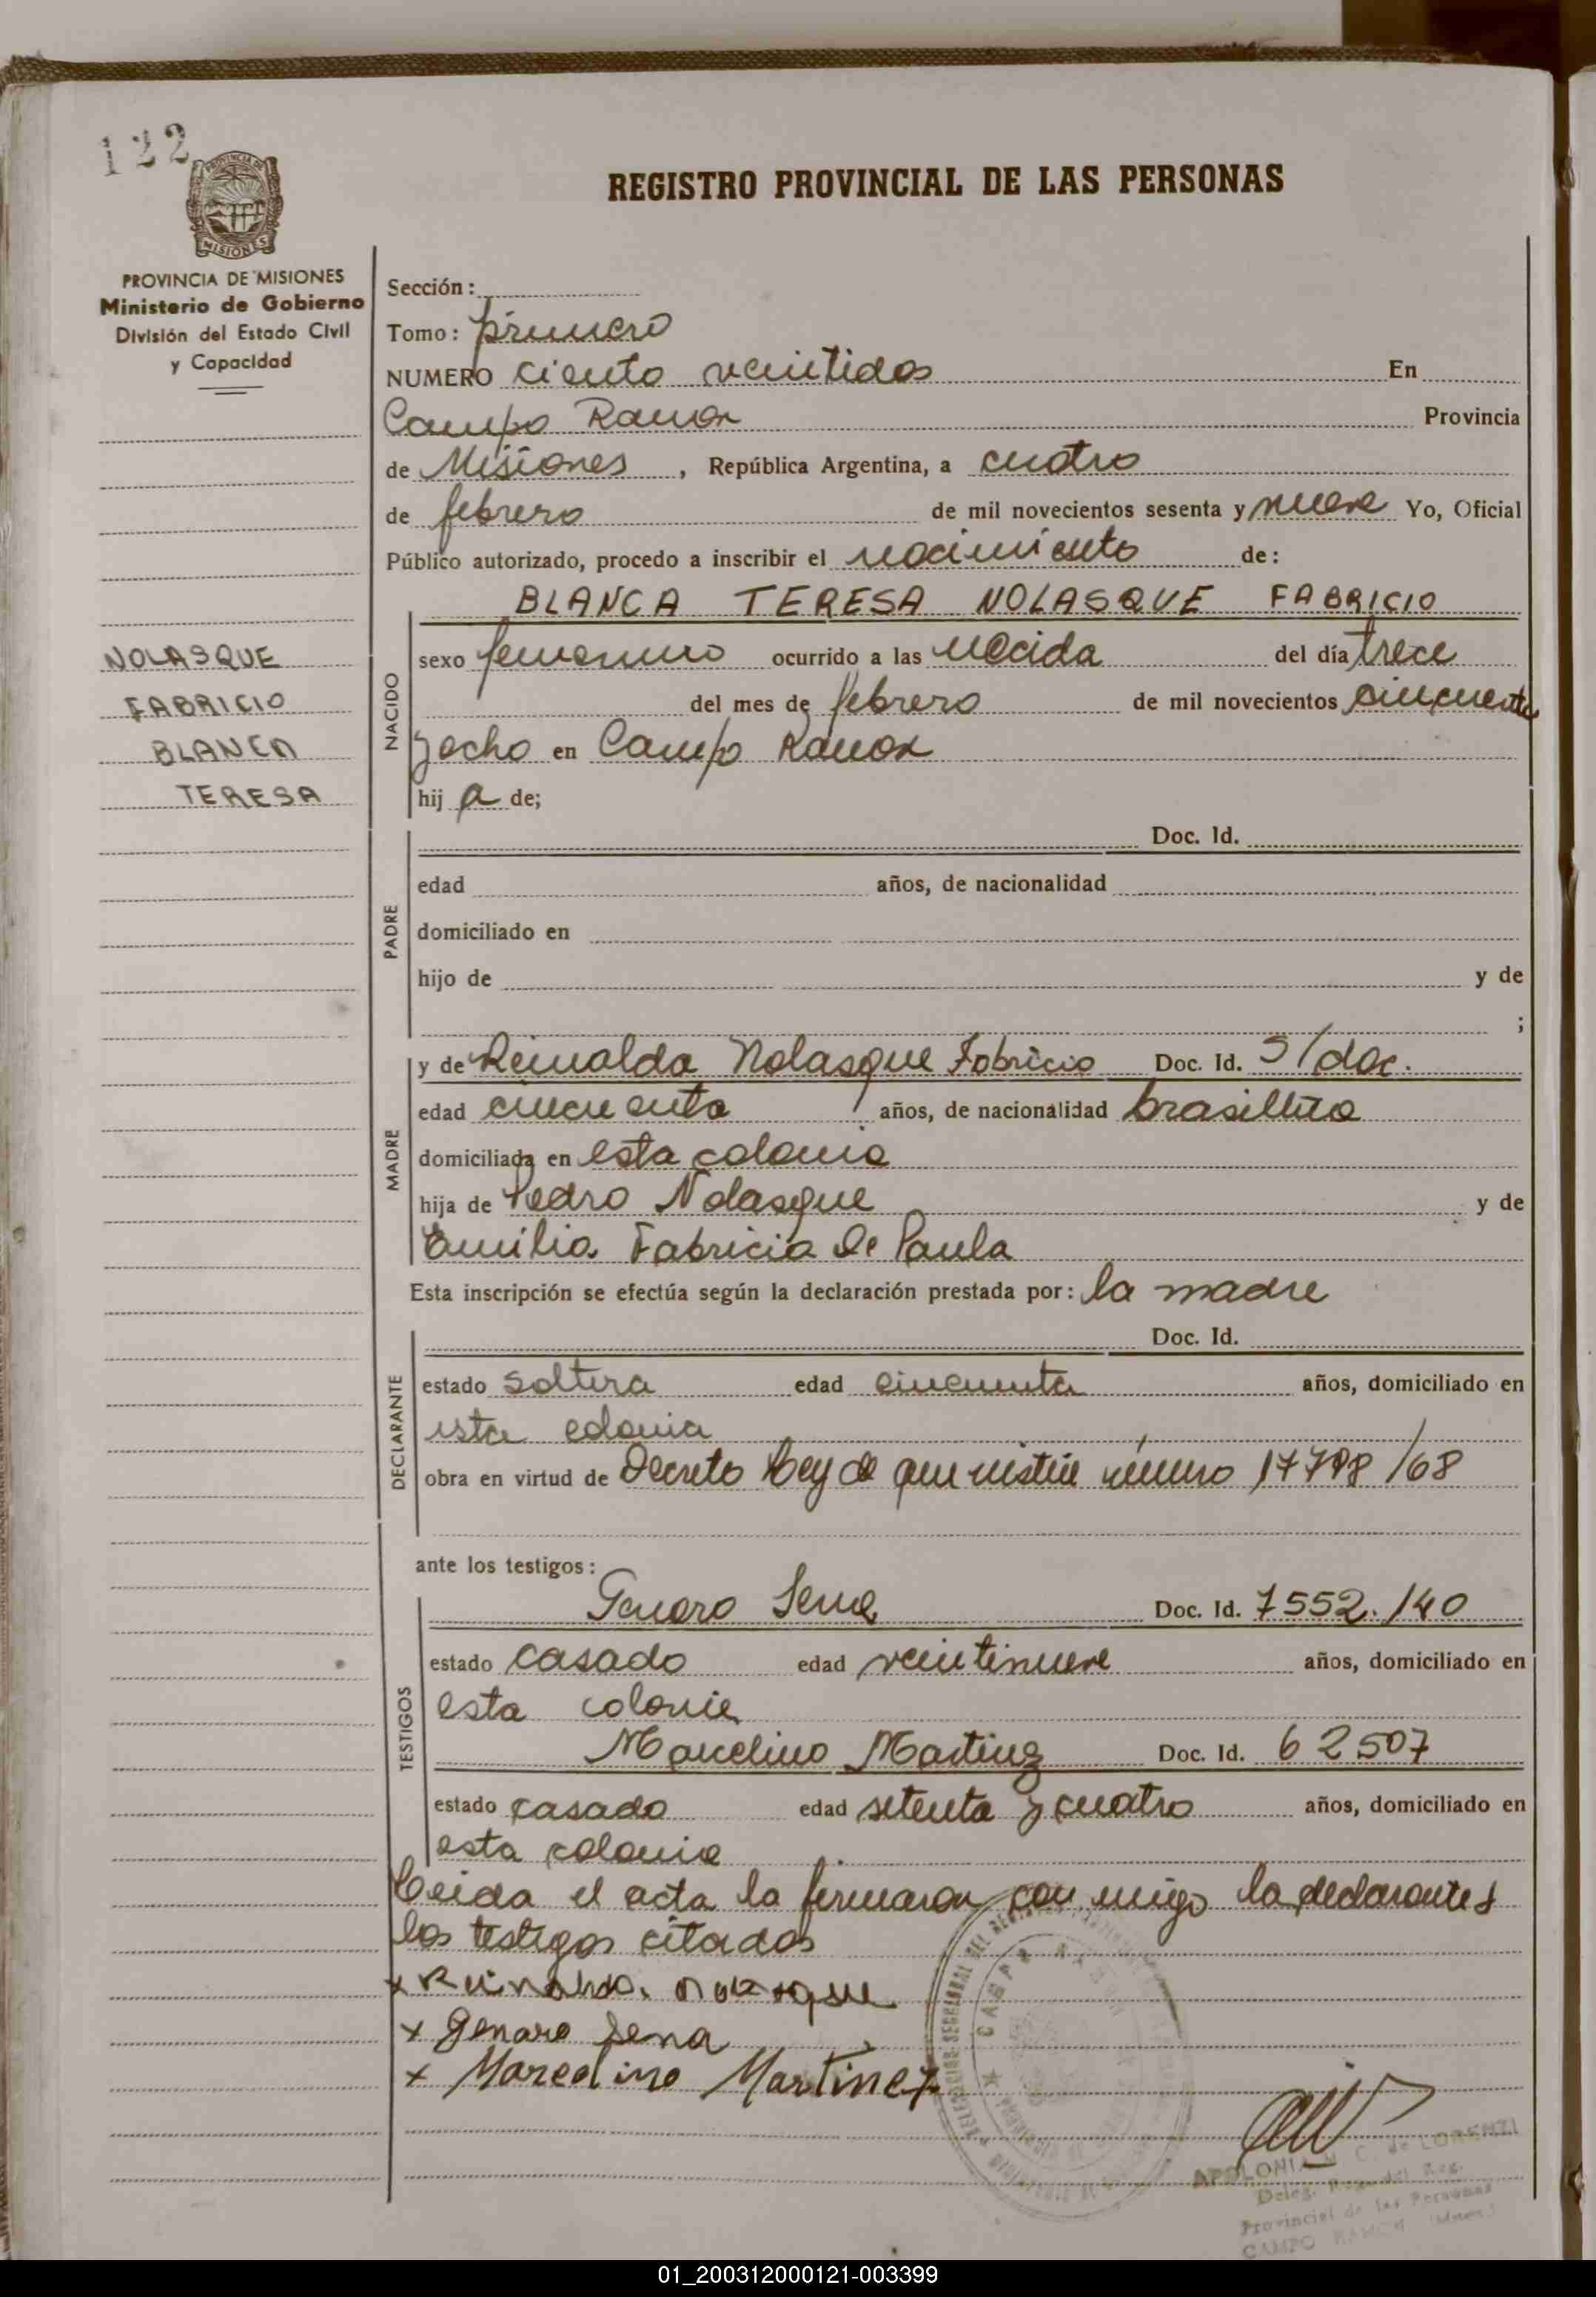 122
PROVINCIA DE MISIONES
PROVINCIA DE MISIONES
Ministerio de Gobierno
División del Estado Civil
y Capacidad
REGISTRO PROVINCIAL DE LAS PERSONAS
Sección:
Tomo: primero
NUMERO ciento veintidos En
Campo Ramon Provincia
de Misiones, República Argentina, a cuatro
de febrero de mil novecientos sesenta y nueve Yo, Oficial
Público autorizado, procedo a inscribir el nacimiento de:
BLANCA TERESA NOLASQUE FABRICIO
NOLASQUE
FABRICIO
BLANCA
TERESA
NACIDO
sexo femenino ocurrido a las del día trece
del mes de febrero de mil novecientos cincuenta
y ocho en Campo Ramon
hij a de;
PADRE
Doc. Id.
edad años, de nacionalidad
domiciliado en
hijo de y de
;
MADRE
y de Reinalda Nolasque Fabricio Doc. Id. S/doc.
edad cincuenta años, de nacionalidad brasileña
domiciliada en esta colonia
hija de Pedro Nolasque y de
Emilia Fabricia de Paula
Esta inscripción se efectúa según la declaración prestada por: la madre
DECLARANTE
Doc. Id.
estado soltera edad cincuenta años, domiciliado en
esta colonia
obra en virtud de Decreto Ley de amnistía número 17798/68
ante los testigos:
TESTIGOS
Genaro Sena Doc. Id. 7552.140
estado casado edad veintinueve años, domiciliado en
esta colonia
Marcelino Martinez Doc. Id. 62507
estado casado edad setenta y cuatro años, domiciliado en
esta colonia
Leida el acta la firmaron con migo la declarante y
los testigos citados
x Reinalda. nolasque
x genaro Sena
x Marcelino Martinez
APOLONIA M. C. de LORENZI
Deleg. del Reg.
Provincial de las Personas
CAMPO RAMON
01_200312000121-003399